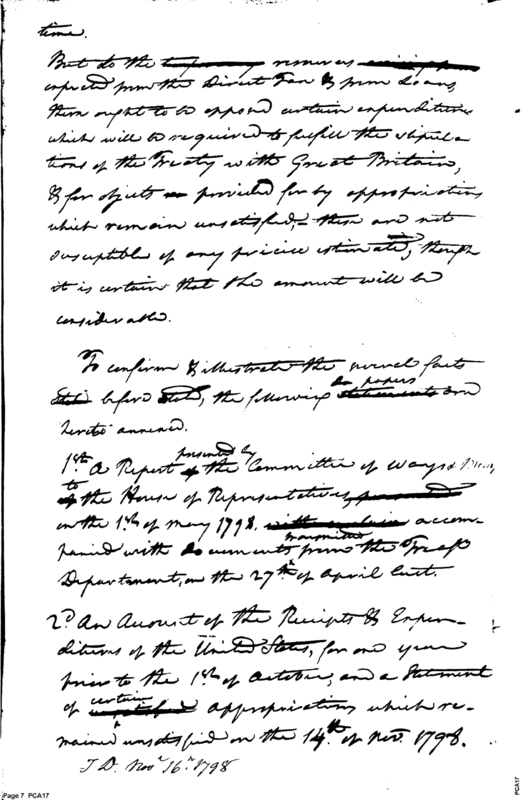 time.
But to the temporary resources
expected from the Direct Tax & from Loans,
there ought to be opposed certain expenditures
which will be required to fulfill the stipula-
tions of the Treaty with Great Britain,
& for objects provided for by appropriations
which remain unsatisfied,- these are not
susceptible of any precise estimate, though
it is certain that the amount will be
considerable.
To confirm & illustrate the several facts
before stated, the following papers are
hereto annexed.
1st. A Report presented by the Committee of Ways & Means,
to the House of Representatives,
on the 1st. of May 1798. accom-
panied with documents transmitted from the Treasy
Department, on the 27th. of April last.
2d. An Account of the Receipts & Expen-
ditures of the United States, for one year
prior to the 1st. of October, and a Statement
of certain appropriations which re-
mained unsatisfied on the 14th. of Novr. 1798.
T D. Novr. 16th. 1798
Page 7 PCA17
PCA17